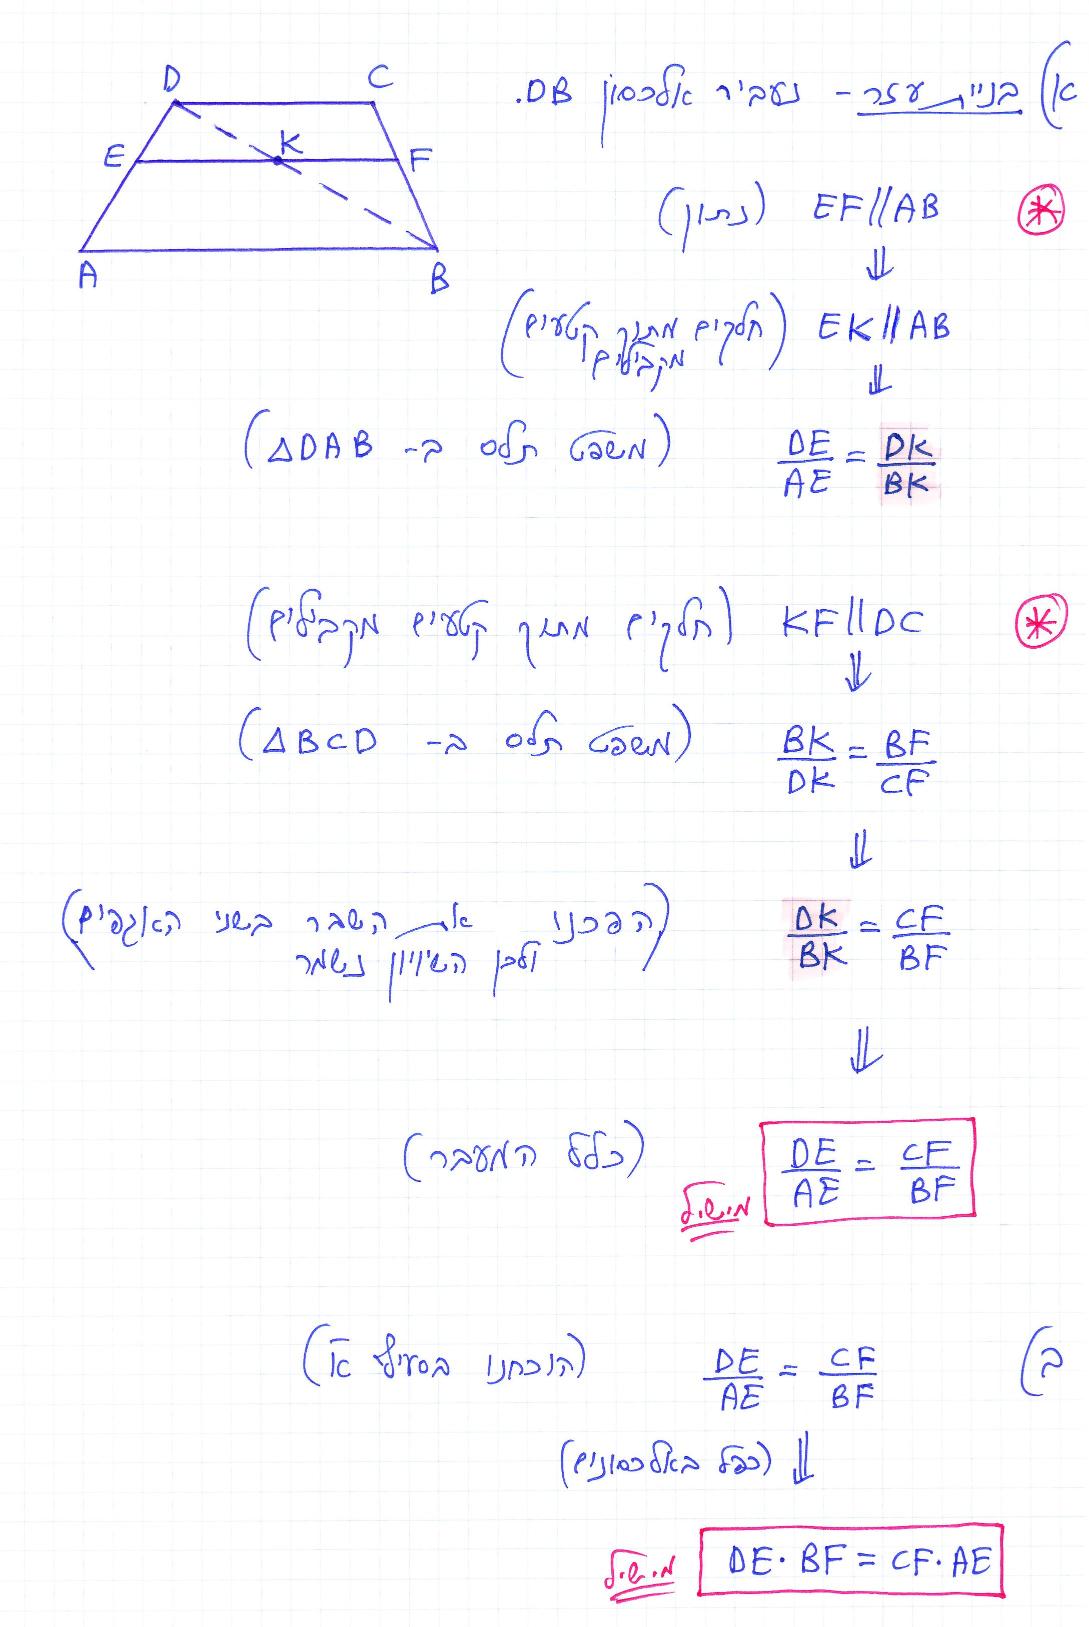 D C
K
E F
A B
א) בניית עזר - נעביר אלכסון DB.
EF//AB (נתון)
⇓
EK//AB (חלקים מתוך קטעים מקבילים)
⇓
DE/AE = DK/BK (משפט תלס ב- ΔDAB)
KF//DC (חלקים מתוך קטעים מקבילים)
⇓
BK/DK = BF/CF (משפט תלס ב- ΔBCD)
⇓
DK/BK = CF/BF (הפכנו את השבר בשני האגפים
ולכן השיוויון נשמר)
⇓
DE/AE = CF/BF (כלל המעבר)
מ.ש.ל
ב) DE/AE = CF/BF (הוכחנו בסעיף א)
⇓ (כפל באלכסונים)
DE·BF = CF·AE
מ.ש.ל